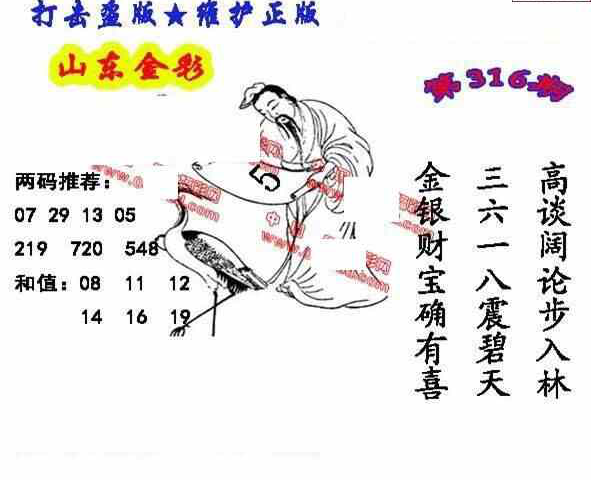 打击盗版★维护正版
山东金彩
第316期
两码推荐：
07 29 13 05
219 720 548
和值：08 11 12
14 16 19
5
高谈阔论步入林
三六一八震碧天
金银财宝确有喜